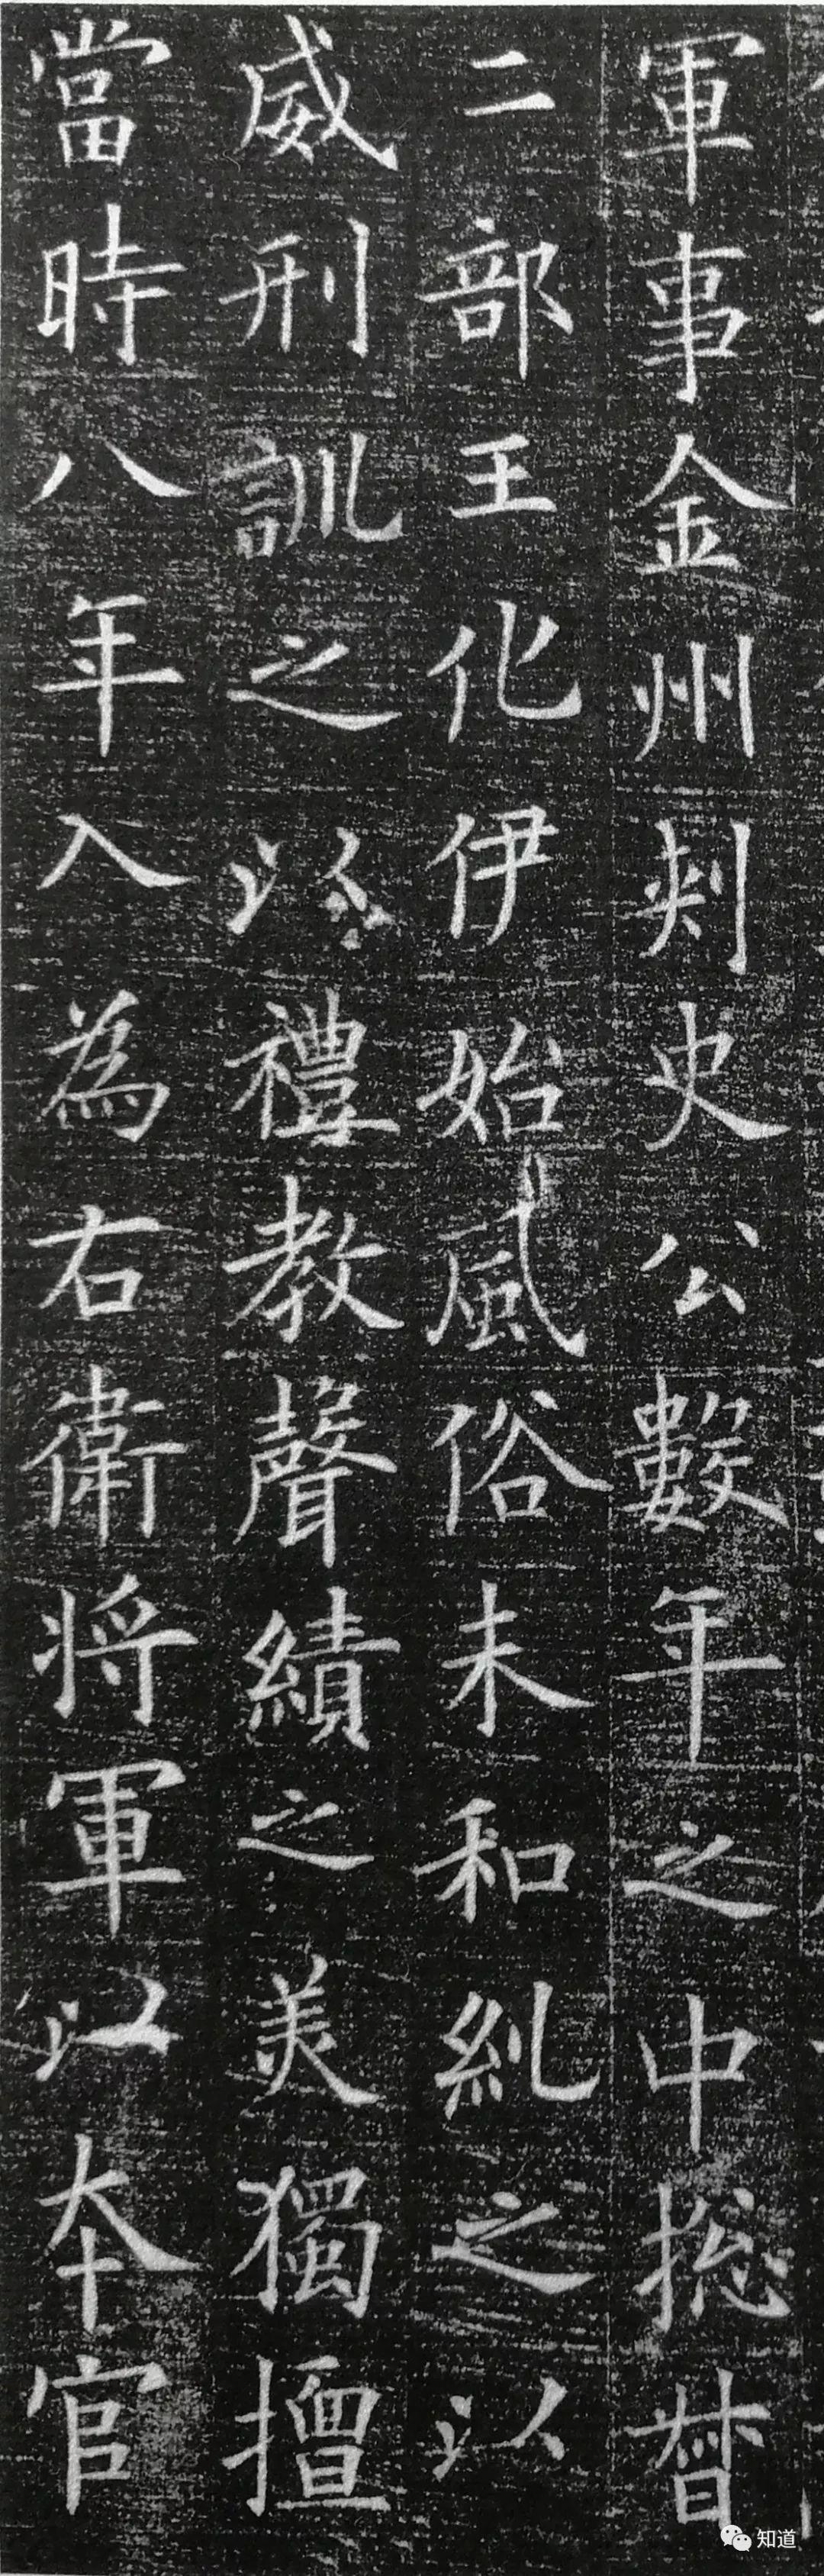 軍事金州刾史公數年之中揔督
二部王化伊始風俗未和糺之以
威刑訓之以禮教聲績之美獨擅
當時八年入為右衛将軍以夲官
知道